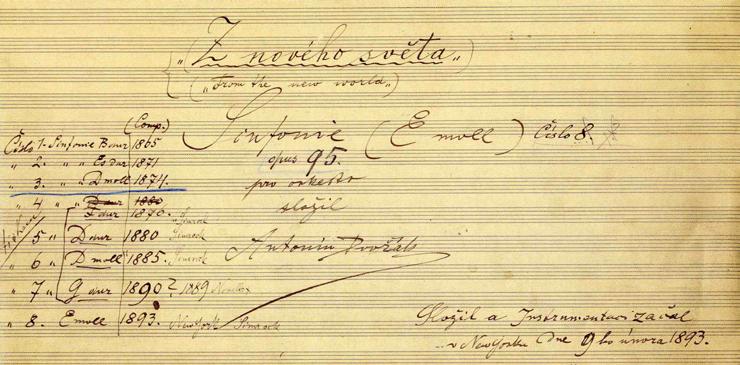 „Z nového světa„
(„From the new world„)
(Comp.)
Sinfonie (E moll) Číslo 8.
opus 95.
pro orkestr
složil
Antonín Dvořák
Číslo 1. Sinfonie B dur 1865
" 2. " " Es dur 1871
" 3. " " D moll 1874.
" 4 " D dur 1880
F dur 1870. Simrock
" 5 " D dur 1880 Simrock
" 6 " D moll 1885. Simrock
" 7 " G dur 1890? 1889 Novello
" 8. E moll 1893. New York Simrock
Složil a Instrumentaci začal
v New Yorku Dne 9ho února 1893.